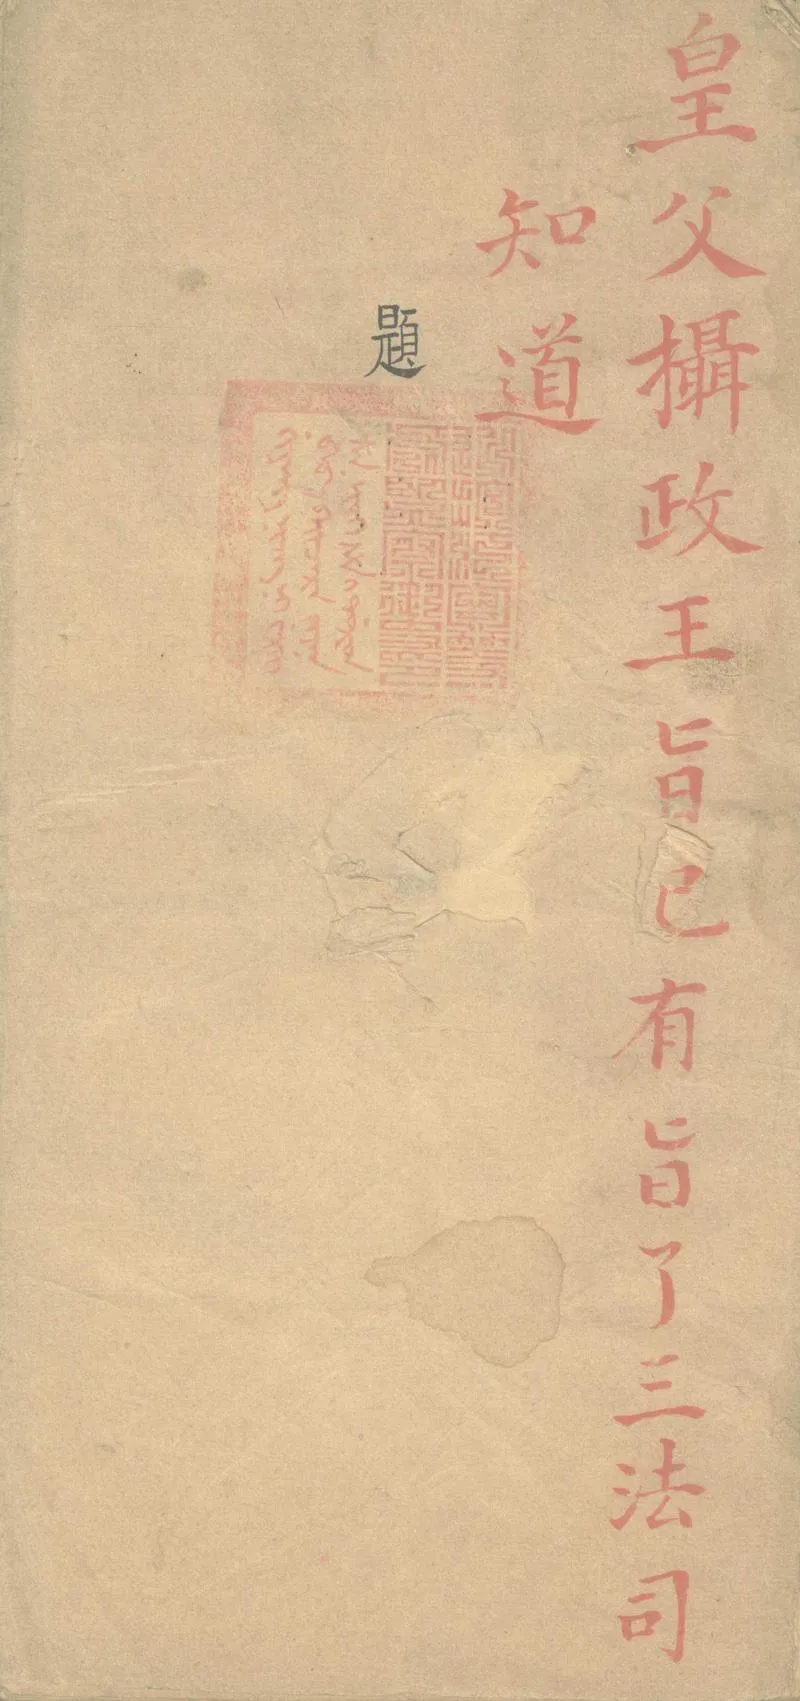 皇父攝政王旨已有旨了三法司
知道
題